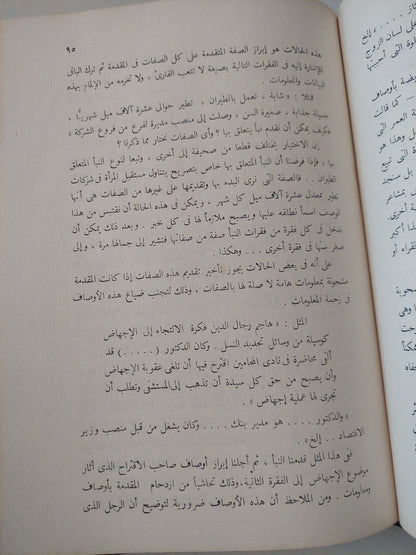 ٩٥
هذه الحالات هو إبراز الصفة المتقدمة على كل الصفات فى المقدمة ثم ترك الباقى
للإشارة إليه فى الفقرات التالية بصيغة لا تتعب القارئ ، ولا تحرمه من الإلمام بهذه
البيانات والمعلومات .
فمثلا : « شابة ، تعمل بالطيران ، تطير حوالى عشرة آلاف ميل شهريًّا ،
جميلة جذابة ، صغيرة السن ، وصلت إلى منصب مديرة لفرع من فروع الشركة »
فكيف يمكن أن نقدم نبأ يتعلق بها ؟ وأى الصفات نختار مما ذكرنا ؟
إن الاختيار يختلف قطعا من صحيفة إلى أخرى ، وتبعا لنوع النبأ المتعلق
بها ، فإذا فرضنا أن النبأ المتعلق بها خاص بتصريح يتناول مستقبل المرأة فى شركات
الطيران . . فالصفة التى نرى البدء بها وتقديمها على غيرها من الصفات هى أنها
تطير بمعدل عشرة آلاف ميل كل شهر ، ويمكن فى هذه الحالة أن نقتبس من هذا
الوصف اسماً نطلقه عليها ويصبح ملازماً لها فى كل خبر . وبعد ذلك يمكن أن
ندخل فى كل فقرة من فقرات النبأ صفة من صفاتها فنشير إلى جمالها مرة ، وإلى
صغر سنها فى فقرة أخرى . . . وهكذا .
على أنه فى بعض الحالات يجوز تأخير تقديم هذه الصفات إذا كانت المقدمة
مشحونة بمعلومات هامة لا صلة لها بالصفات . وذلك لتجنب ضياع هذه الأوصاف
فى زحمة المعلومات .
المثل : « هاجم رجال الدين فكرة الالتجاء إلى الإجهاض
كوسيلة من وسائل تحديد النسل . وكان الدكتور ( . . . . . ) قد
ألقى محاضرة فى نادى المحامين اقترح فيها أن تلغى عقوبة الإجهاض
وأن يصبح من حق كل سيدة أن تذهب إلى المستشفى وتطلب أن
تجرى لها عملية إجهاض » .
« والدكتور . . . . هو مدير بنك . . . . وكان يشغل من قبل منصب وزير
الاقتصاد . . إلخ » .
فى هذا المثل قدمنا النبأ ، ثم أجلنا إبراز أوصاف صاحب الاقتراح الذى أثار
موضوع الإجهاض إلى الفقرة الثانية ، وذلك تحاشياً من ازدحام المقدمة بأوصاف
ومعلومات . ومن الملاحظ أن هذه الأوصاف ضرورية لتوضيح أن الرجل الذى